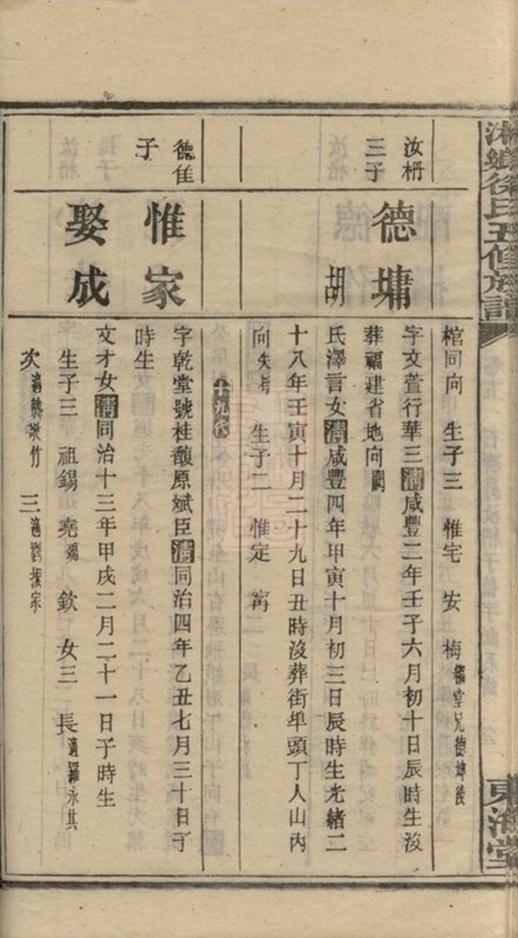 湘鄉徐氏五修族譜
東海堂
棺同向 生子三 惟宅 安 梅 繼堂兄德埤後
汝枬三子
德墉
胡
字文萱行華三清咸豐二年壬子六月初十日辰時生沒
葬福建省地向闕
氏澤言女清咸豐四年甲寅十月初三日辰時生光緒二
十八年壬寅十月二十九日丑時沒葬街埠頭丁人山內
向失考 生子二 惟定 甯
十九代
德隹子
惟家
娶成
字乾堂號桂馥原斌臣清同治四年乙丑七月三十日子
時生
文才女清同治十三年甲戌二月二十一日子時生
生子三 祖錫 堯殤 欽 女三 長適羅永其
次適 竹 三適劉振家